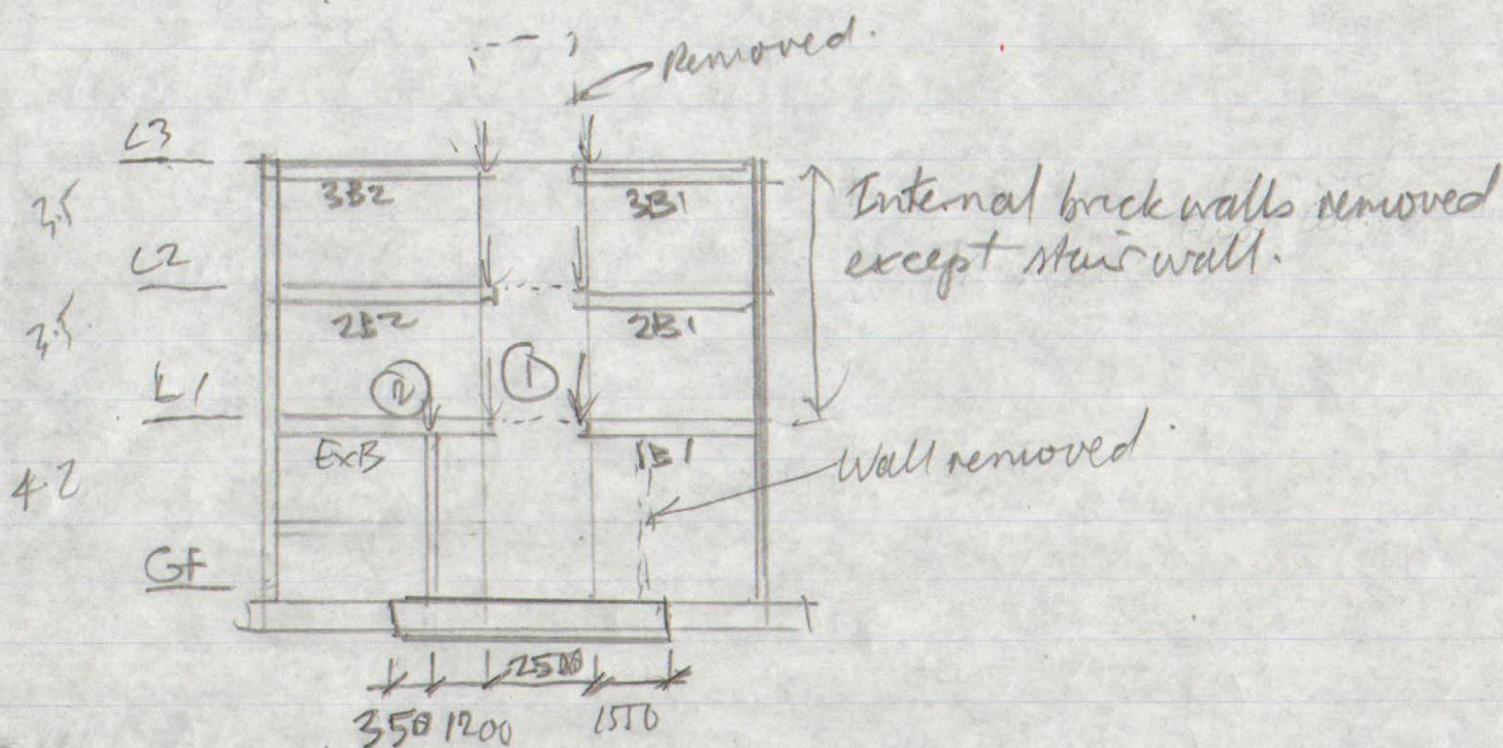 Removed.
L3
3B2
3B1
3.5
Internal brick walls removed
except stair wall.
L2
2B2
2B1
3.5
2
1
L1
ExB
1B1
Wall removed
4.2
GF
2500
350 1200 1550